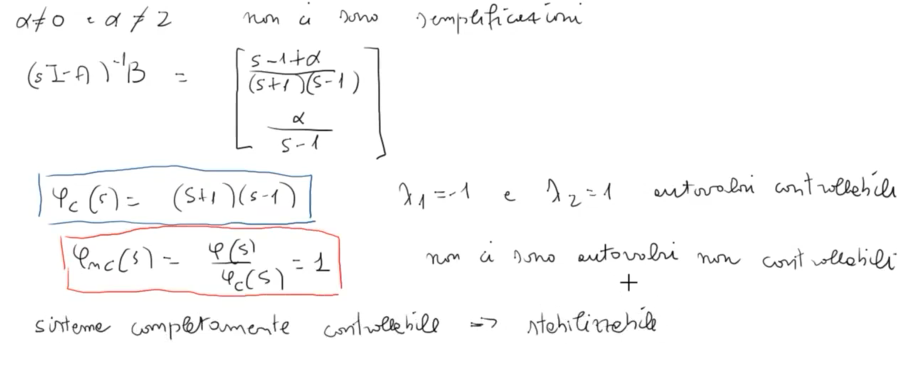 α≠0 e α≠2 non ci sono semplificazioni
(sI-A)⁻¹B = [ (s-1+α)/((s+1)(s-1)) ; α/(s-1) ]
φc(s) = (s+1)(s-1) λ1=-1 e λ2=1 autovalori controllabili
φnc(s) = φ(s)/φc(s) = 1 non ci sono autovalori non controllabili
sistema completamente controllabile → stabilizzabile